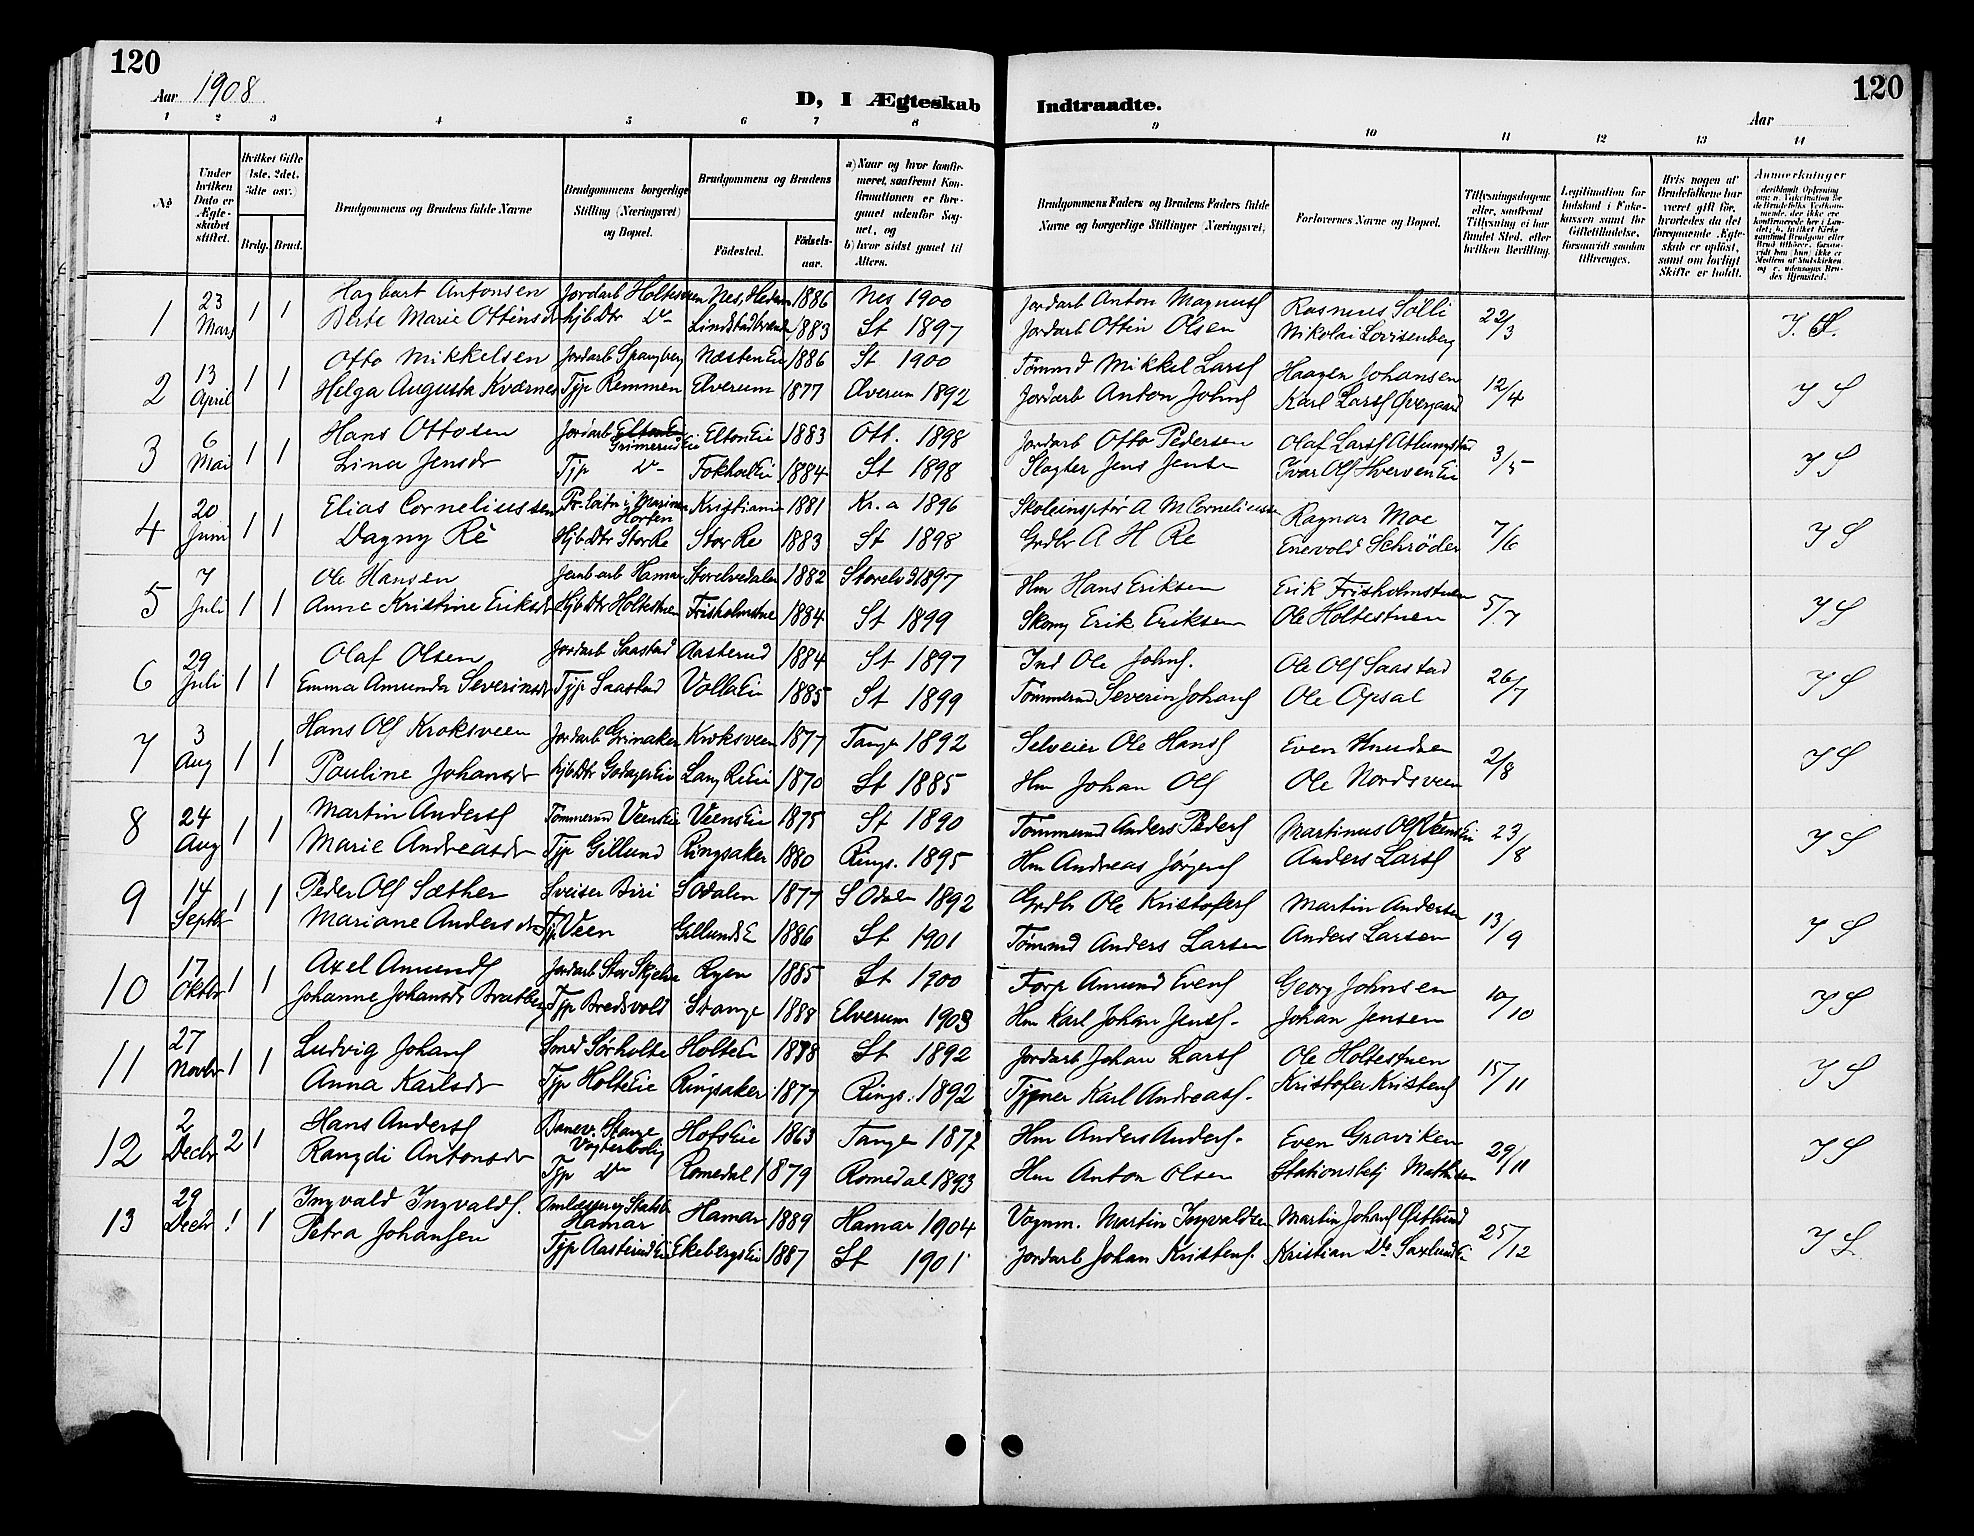 120
Aar 1908
D, I Ægteskab Indtraadte.
Aar
120
1 2 3 4 5 6 7 8 9 10 11 12 13 14
№
Under hvilken Dato er Ægteskabet stiftet.
Hvilket Gifte (1ste, 2det, 3dte osv.)
Brdg. Brud.
Brudgommens og Brudens fulde Navne
Brudgommens borgerlige Stilling (Næringsvei) og Bopæl.
Brudgommens og Brudens
Fødested. Fødselsaar.
a) Naar og hvor konfirmeret, saafremt Konfirmationen er foregaaet udenfor Sognet, og b) hvor sidst gaaet til Alters.
Brudgommens Faders og Brudens Faders fulde Navne og borgerlige Stillinger (Næringsvei)
Forlovernes Navne og Bopæl.
Tillysningsdagene eller, saafremt Tillysning ei har fundet Sted, efter hvilken Bevilling.
Legitimation for Indskud i Enkekassen samt for Giftetilladelse, forsaavidt saadan tiltrænges.
Hvis nogen af Brudefolkene har været gift før, hvorledes da det foregaaende Ægteskab er opløst, samt om lovligt Skifte er holdt.
Anmærkninger
1 23 Mars 1 1 Hagbart Antonsen Jordarb Holtesveen Nes, Hedem 1886 Nes 1900 Jordarb Anton Magnuss Rasmus Sølli 22/3
Berte Marie Ottinsdr Hjb.Dtr do Lindstad 1883 St 1897 Jordarb Ottin Olsen Nikolai Lovisenberg
2 13 April 1 1 Otto Mikkelsen Jordarb Spangberg Næsten Eie 1886 St 1900 Tømmd Mikkel Larss Haagen Johansen 12/4 I S
Helga Augusta Kværnes Tjp Remmen Elverum 1877 Elverum 1892 Jordarb Anton Johns Karl Larss Øvergaard
3 6 Mai 1 1 Hans Ottosen Jordarb Grimerud Eie Elton Eie 1883 Ott. 1898 Jordarb Otto Pedersen Olaf Larss 3/5 I S
Lina Jensdr Tjp do Fokhol Eie 1884 St 1898 Slagter Jens Jensen Ivar Ols Hverven Eie
4 20 Juni 1 1 Elias Corneliussen Pr.løitn i Marinen Horten Kristiania 1881 Kr.a 1896 Skoleinsptør A M Corneliussen Ragnar Moe 7/6 I S
Dagny Re Hjb.Dtr Stor Re Stor Re 1883 St 1898 Grdbr A H Re Enevold Schrøder
5 7 Juli 1 1 Ole Hansen Jernb arb Hamar Storelvedalen 1882 Storelvd 1897 Hm Hans Eriksen Erik Frisholmstuen 5/7 I S
Anne Kristine Eriksdr Hjb.Dtr Holtestuen Frisholmstue 1884 St 1899 Skomg Erik Eriksen Ole Holtestuen
6 29 Juli 1 1 Olaf Olsen Jordarb Saastad Aasterud 1884 St 1897 Ind Ole Johns. Ole Ols Saastad 26/7 I S
Emma Amunda Severinsdr Tjp Saastad Volla Eie 1885 St 1899 Tømmermd Severin Johans Ole Opsal
7 3 Aug 1 1 Hans Ols Kroksveen Jordarb Grinaker Kroksveen 1877 Tangen 1892 Selveier Ole Hanss Even Knudsen 2/8 I S
Pauline Johansdr Hjb.Dtr Godager Eie Lang Re Eie 1870 St 1885 Hm Johan Ols Ole Nordsveen
8 24 Aug 1 1 Martin Anderss Tømmermd Veens Eie Veens Eie 1875 St 1890 Tømmermd Anders Peders Martinus Ols Veens Eie 23/8 I S
Marie Andreasdr Tjp Gillund Ringsaker 1880 Rings. 1895 Hm Andreas Jørgens Anders Larss
9 14 Septbr 1 1 Peder Ols Sæther Sveiser Biri S Odalen 1877 S Odalen 1892 Grdbr Ole Kristofers Martin Andersen 13/9 I S
Mariane Andersdr Tjp Veen Gillunds E 1886 St 1901 Tømmd Anders Larsen Anders Larsen
10 17 Oktbr 1 1 Axel Amunds Jordarb Stor Skjelve Ryen 1885 St 1900 Forp Amund Evens Georg Johnsen 10/10 I S
Johanne Johansdr Bratberg Tjp Bredsvold Stange 1888 Elverum 1903 Hm Karl Johan Jenss. Johan Jensen
11 27 Novbr 1 1 Ludvig Johans Smed Sørholte Holte Eie 1878 St 1892 Jordarb Johan Larss Ole Holtestuen 15/11 I S
Anna Karlsdr Tjp Holte Eie Ringsaker 1877 Rings. 1892 Tjener Karl Andreass. Kristofer Kristens
12 2 Decbr 2 1 Hans Anderss Banev. Stange Vogterbolig Hofs Eie 1863 Tangen 1877 Hm Anders Anders. Even Graviken 29/11 I S
Rangdi Antonsdr Tjp do Romedal 1879 Romedal 1893 Hm Anton Olsen Stationsbtj Mathisen
13 29 Decbr 1 1 Ingvald Ingvalds. Hamar Hamar 1889 Hamar 1904 Vognm. Martin Ingvaldsen Martin Johans Østlund 25/12 I S
Petra Johansen Tjp Aasterud Eie Ekebergs Eie 1887 St 1901 Jordarb Johan Kristens. Kristian do Saxlund Eie